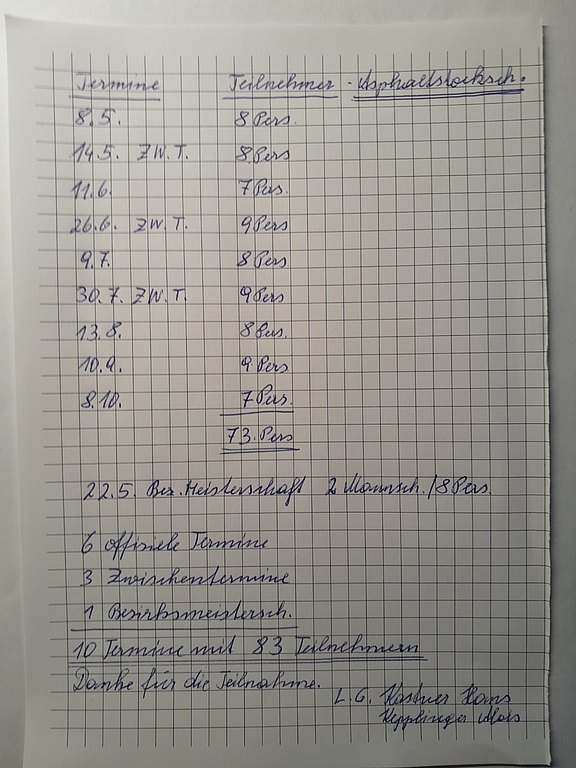 Termine Teilnehmer - Asphaltstocksch.
8.5. 8 Pers.
14.5. ZW.T. 8 Pers
11.6. 7 Pers.
26.6. ZW.T. 9 Pers
9.7. 8 Pers
30.7. ZW.T. 9 Pers
13.8. 8 Pers.
10.9. 9 Pers
8.10. 7 Pers.
73. Pers
22.5. Bez. Meisterschaft 2 Mannsch. / 8 Pers.
6 offiziele Termine
3 Zwischentermine
1 Bezirksmeistersch.
10 Termine mit 83 Teilnehmern
Danke für die Teilnahme.
L.G. Kastner Hans
Kepplinger Alois